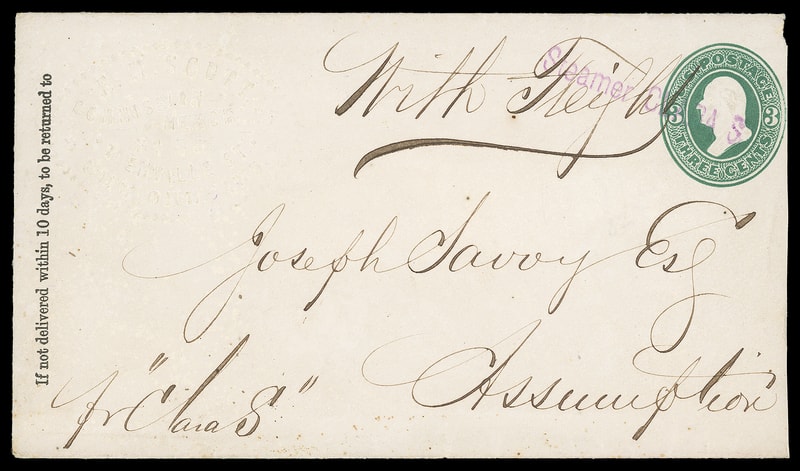 With Freight
Steamer CLARA S
U.S. POSTAGE
3 3
THREE CENTS
If not delivered within 10 days, to be returned to
Joseph Savoy Esq
Assumption
pr "Clara S"